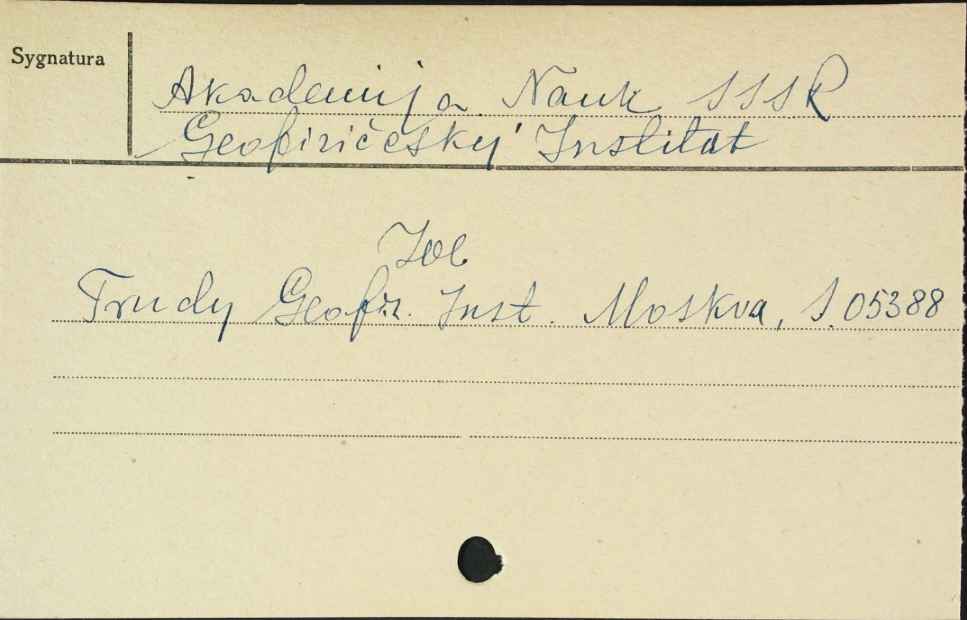 Sygnatura
Akademija Nauk SSSR
Geofizičeskij Institut
Zob
Trudy Geofiz. Inst. Moskva, S.05388